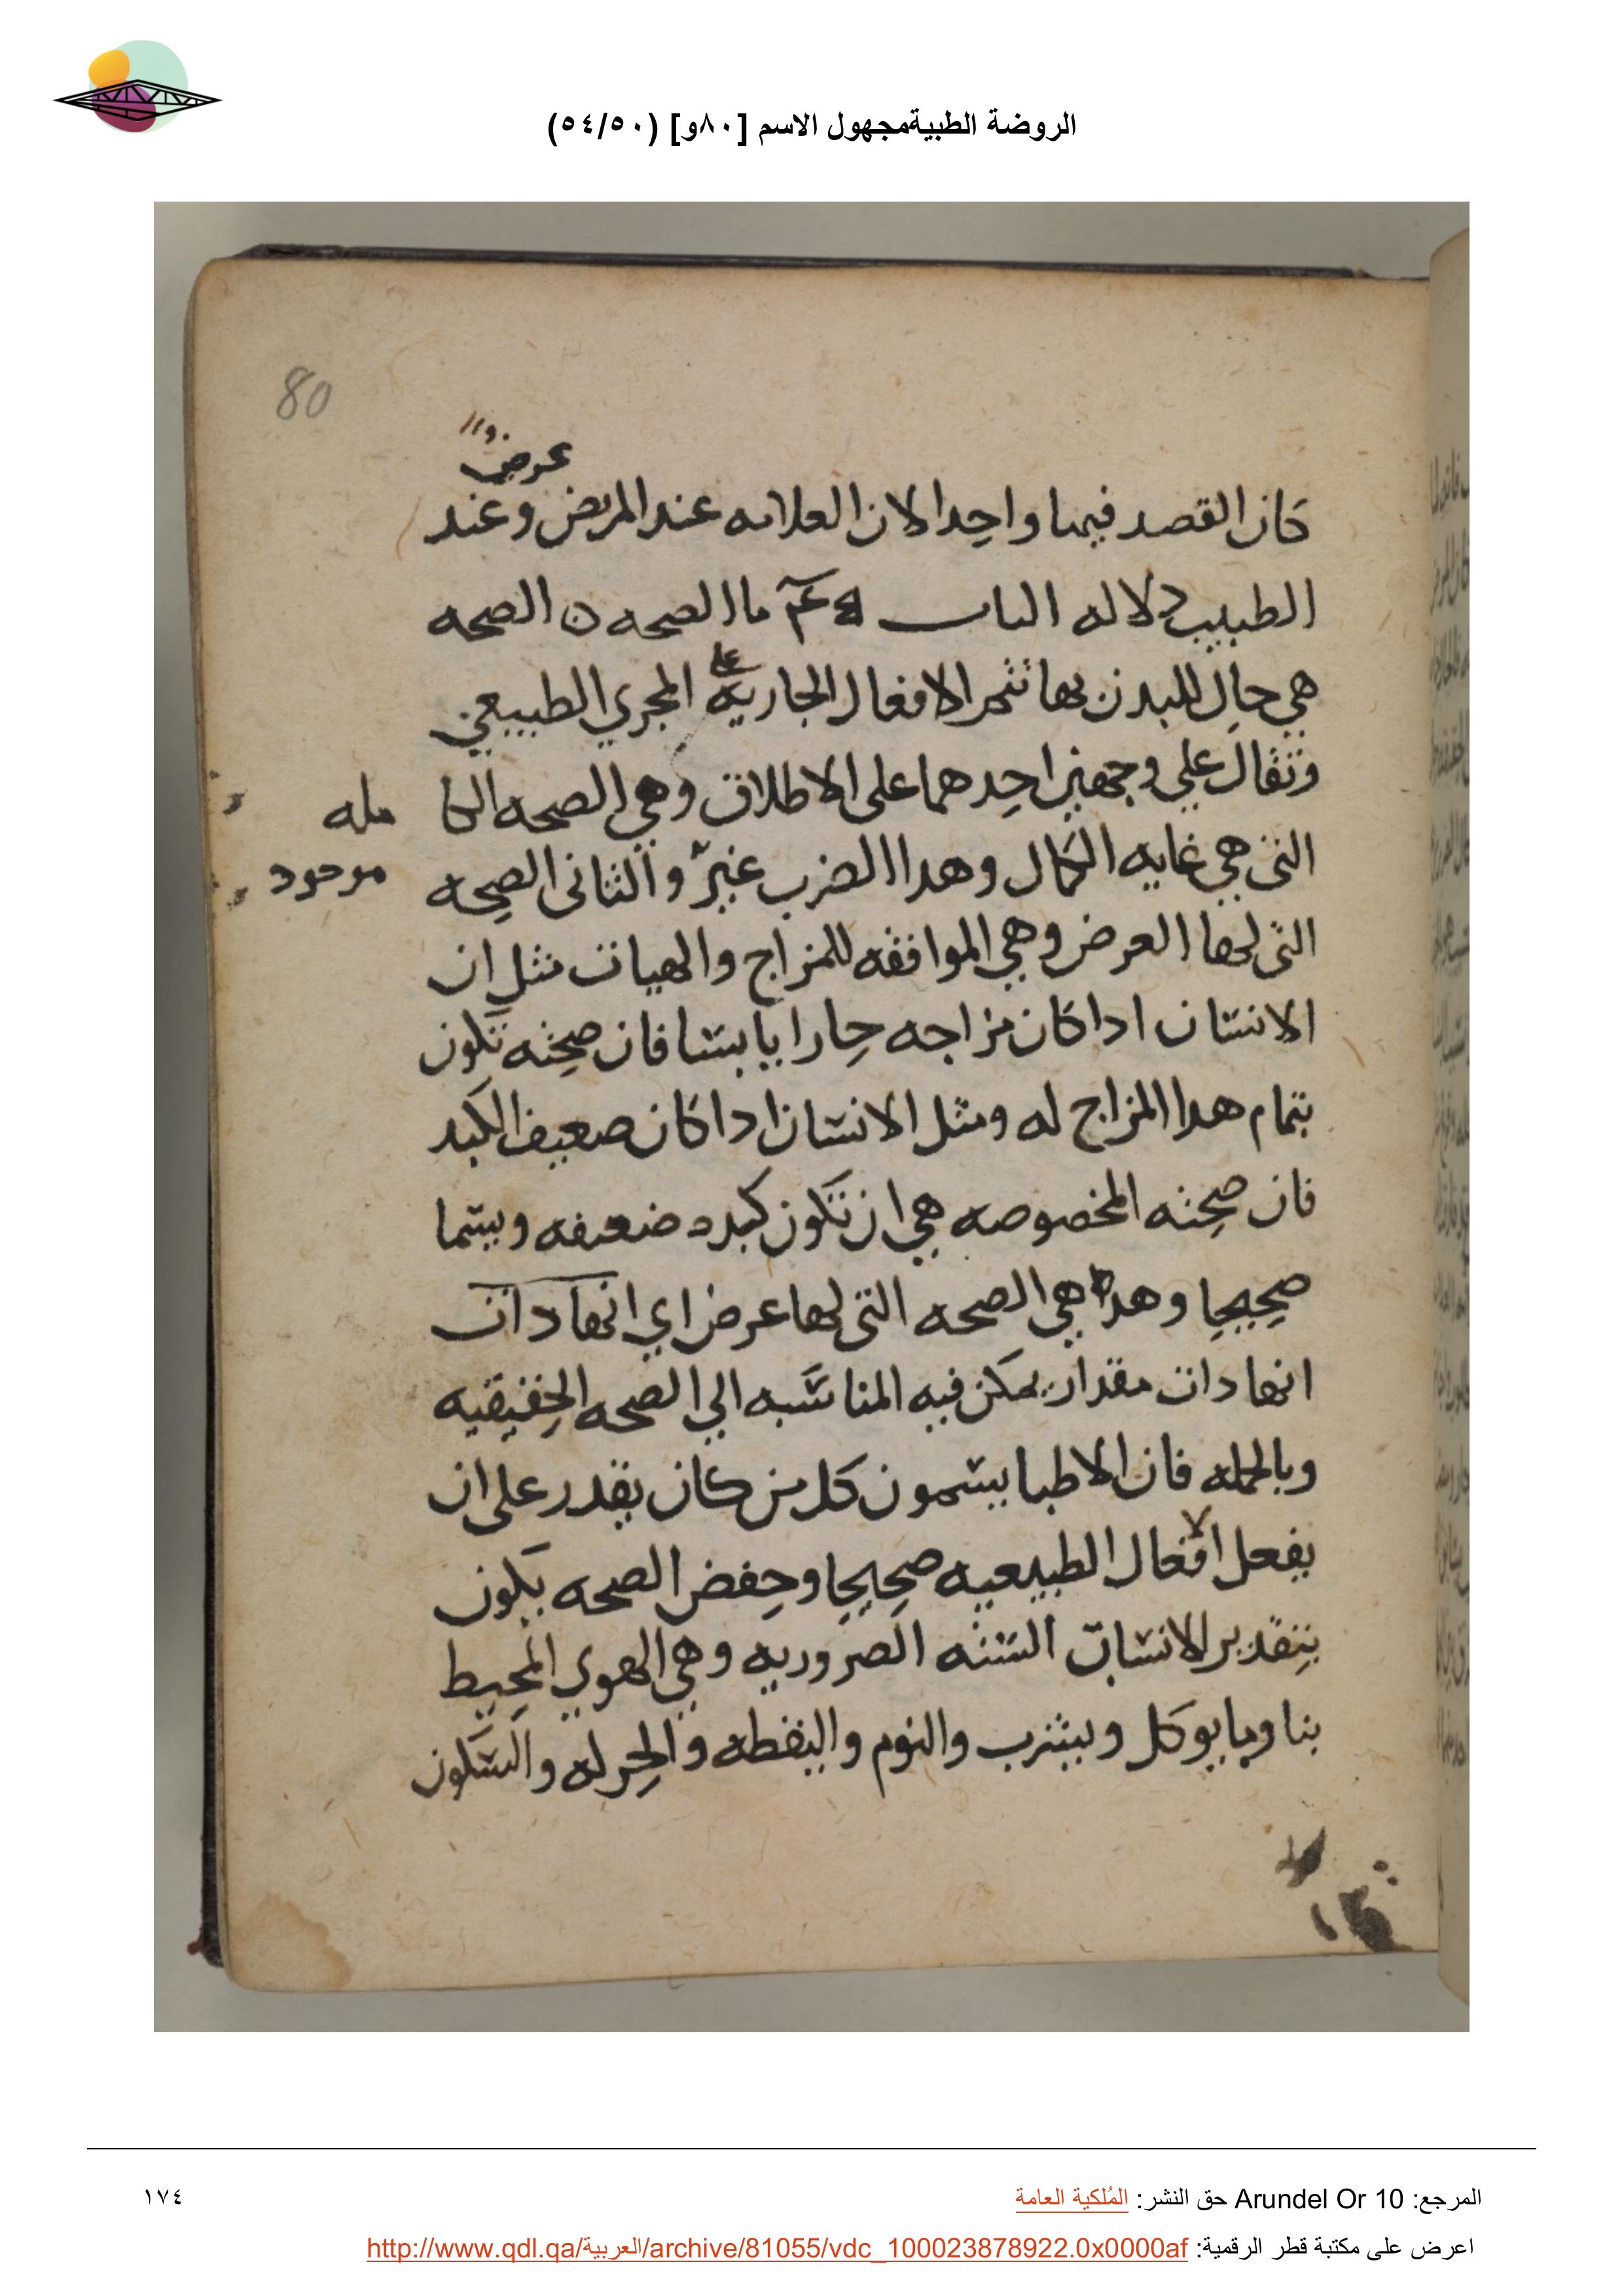 الروضة الطبيةمجهول الاسم [٨٠و] (٥٤/٥٠)
80
عرض
كان القصد فيهما واحدا لان العلامه عند المريض وعند
الطبيب دلاله الباب ما الصحه الصحه
هي حال للبدن بها تتم الافعال الجاريه على المجري الطبيعي
وتقال علي وجهين احدهما على الاطلاق وهي الصحه الكا مله
التي هي غايه الكمال وهدا الضرب غير والثاني الصحه
موجود
التي لها العرض وهي الموافقه للمزاج والهيات مثل ان
الانسان ادا كان مزاجه حارا يابسا فان صحته تكون
بتمام هدا المزاج له ومثل الانسان ادا كان ضعيف الكبد
فان صحته المخصوصه هي ان تكون كبده ضعيفه ويسما
صحيحا وهده هي الصحه التي لها عرض اي انها دات
انها دات مقدار يمكن فيه المناسبه الي الصحه الحقيقيه
وبالجمله فان الاطبا يسمون كل من كان يقدر على ان
يفعل الافعال الطبيعيه صحيحا وحفض الصحه يكون
بتقدير الاسباب السته الضروريه وهي الهوي المحيط
بنا وما يوكل ويشرب والنوم واليقظه والحركه والسكون
المرجع: Arundel Or 10 حق النشر: المُلكية العامة
١٧٤
اعرض على مكتبة قطر الرقمية: http://www.qdl.qa/العربية/archive/81055/vdc_100023878922.0x0000af